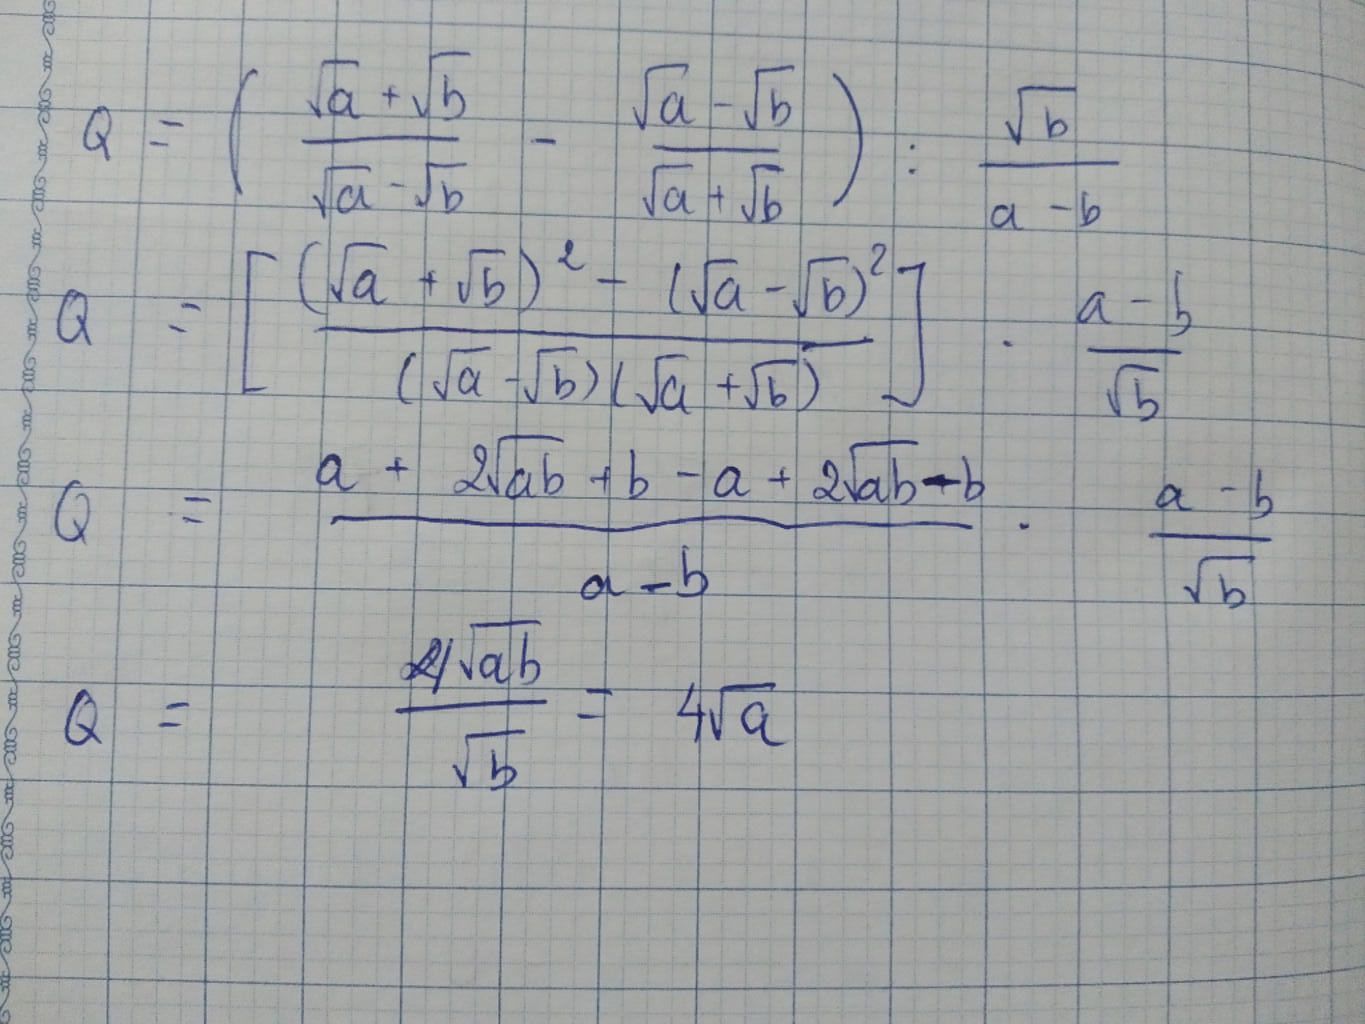 Q = ( (√a + √b)/(√a - √b) - (√a - √b)/(√a + √b) ) : √b/(a - b)
Q = [ ((√a + √b)² - (√a - √b)²)/((√a - √b)(√a + √b)) ] · (a - b)/√b
Q = (a + 2√ab + b - a + 2√ab - b)/(a - b) · (a - b)/√b
Q = 4√ab/√b = 4√a